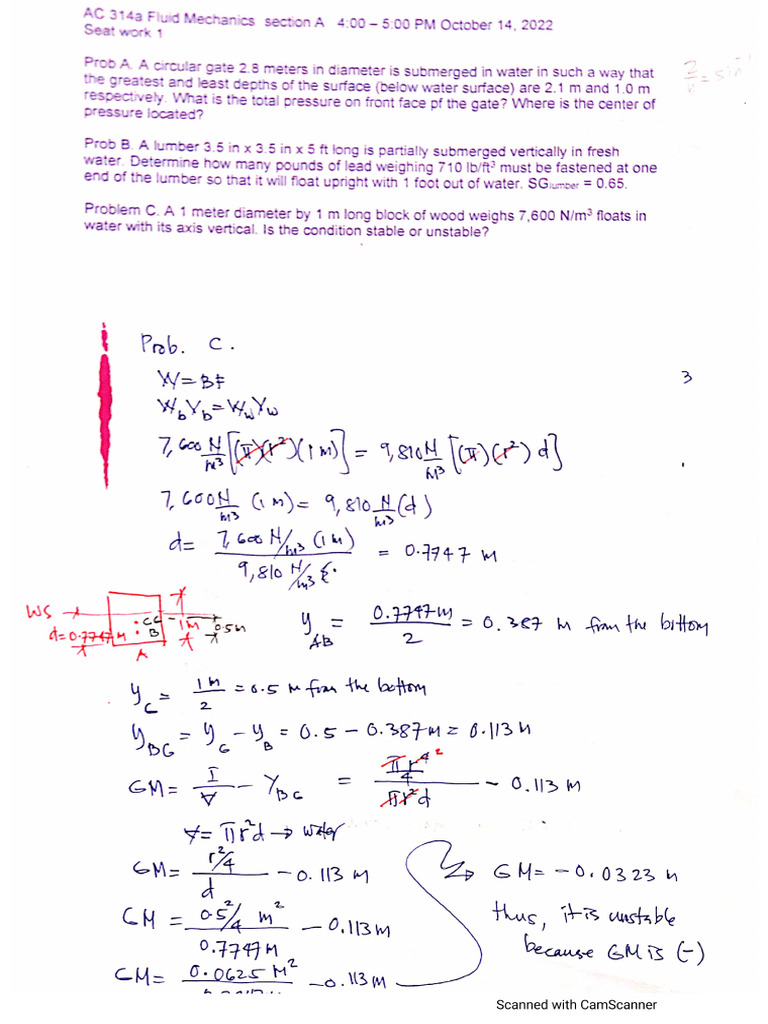 AC 314a Fluid Mechanics section A 4:00 – 5:00 PM October 14, 2022
Seat work 1
Prob A. A circular gate 2.8 meters in diameter is submerged in water in such a way that
the greatest and least depths of the surface (below water surface) are 2.1 m and 1.0 m
respectively. What is the total pressure on front face pf the gate? Where is the center of
pressure located?
Prob B. A lumber 3.5 in x 3.5 in x 5 ft long is partially submerged vertically in fresh
water. Determine how many pounds of lead weighing 710 lb/ft³ must be fastened at one
end of the lumber so that it will float upright with 1 foot out of water. SGlumber = 0.65.
Problem C. A 1 meter diameter by 1 m long block of wood weighs 7,600 N/m³ floats in
water with its axis vertical. Is the condition stable or unstable?
Prob. C.
3
W = BF
W_b V_b = W_w V_w
7,600 N/m³ [(π)(r²)(1 m)] = 9,810 N/m³ [(π)(r²) d]
7,600 N/m³ (1 m) = 9,810 N/m³ (d)
d = 7,600 N/m³ (1 m) / 9,810 N/m³ = 0.7747 m
WS
d=0.7747 M
B
1m
0.5m
A
y_AB = 0.7747 m / 2 = 0.387 m from the bottom
y_C = 1m / 2 = 0.5 m from the bottom
y_BG = y_G - y_B = 0.5 - 0.387 m = 0.113 m
GM = I/V - Y_BG = πr⁴/4 / πr²d - 0.113 m
V = πr²d → water
GM = r²/4 / d - 0.113 m
GM = 0.5²/4 m² / 0.7747 m - 0.113 m
GM = 0.0625 m² - 0.113 m
GM = -0.0323 m
thus, it is unstable
because GM is (-)
Scanned with CamScanner